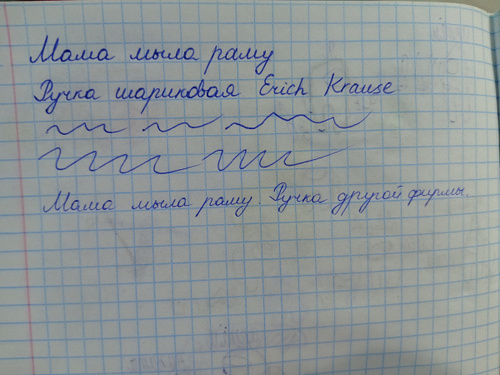 Мама мыла раму
Ручка шариковая Erich Krause
Мама мыла раму. Ручка другой фирмы.